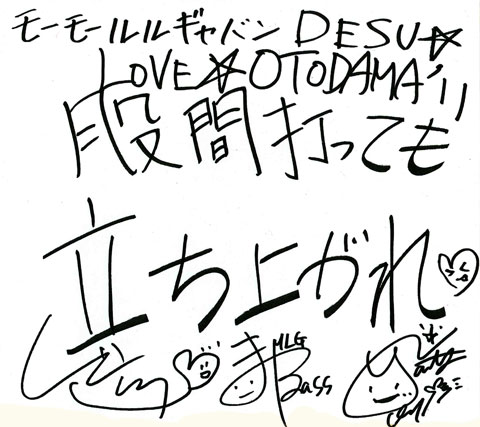 モーモールルギャバン DESU☆
LOVE☆OTODAMA'11
股間打っても
立ち上がれ
MLG
Bass